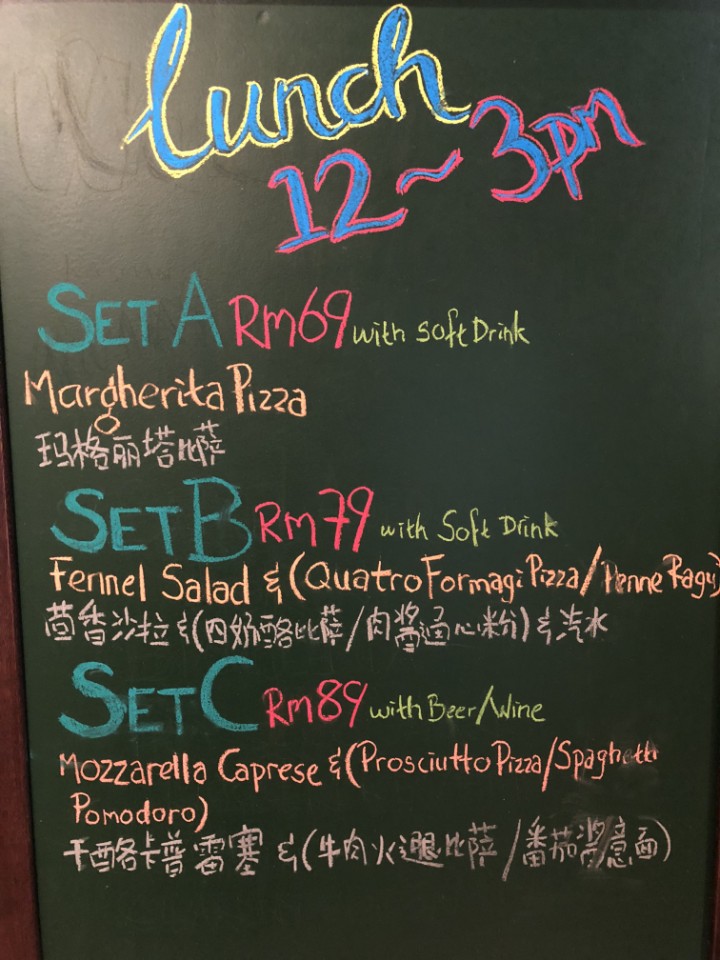 Lunch
12~3pm
SET A RM69 with soft Drink
Margherita Pizza
玛格丽塔比萨
SET B RM79 with Soft Drink
Fennel Salad & (Quatro Formagi Pizza/Penne Ragu)
茴香沙拉 & (四奶酪比萨/肉酱通心粉) & 汽水
SET C RM89 with Beer/Wine
Mozzarella Caprese & (Prosciutto Pizza/Spaghetti
Pomodoro)
干酪卡普雷塞 & (牛肉火退比萨/番茄酱意面)